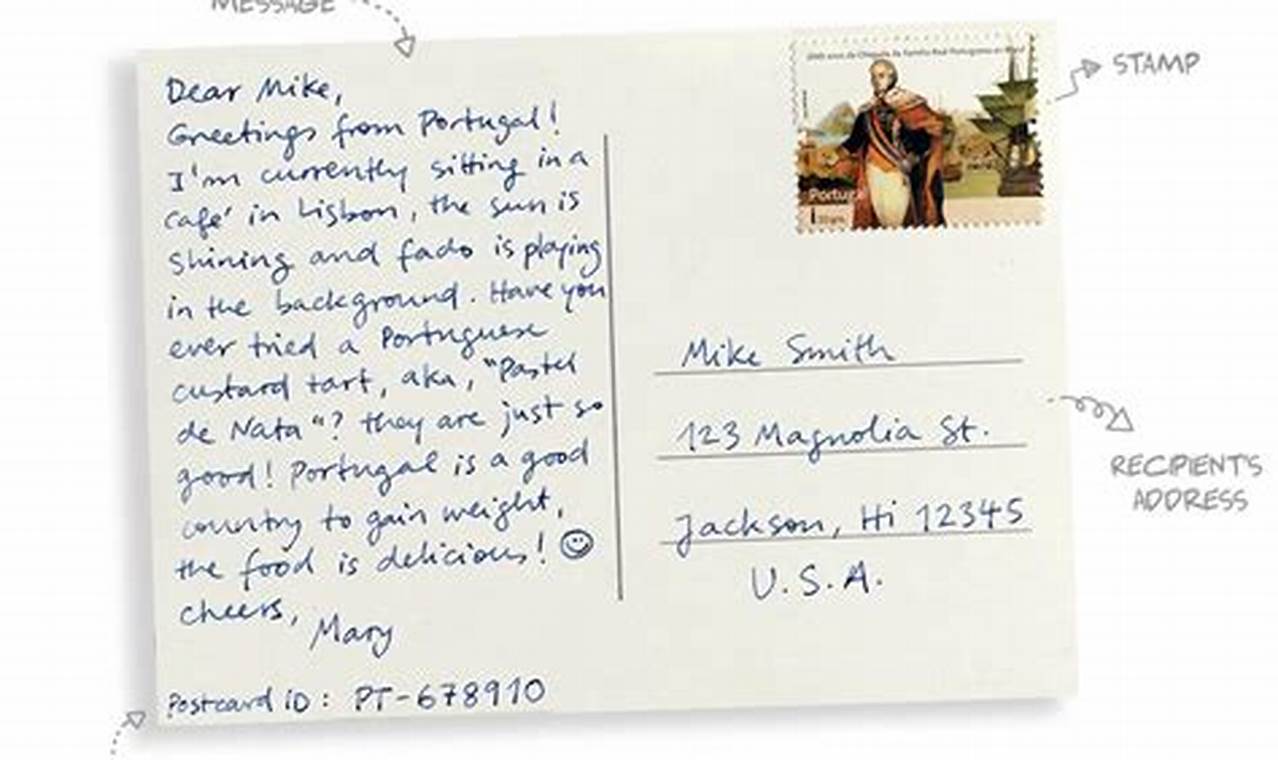 MESSAGE
Dear Mike,
Greetings from Portugal!
I'm currently sitting in a
café in Lisbon, the sun is
shining and fado is playing
in the background. Have you
ever tried a Portuguese
custard tart, aka, "Pastel
de Nata"? they are just so
good! Portugal is a good
country to gain weight,
the food is delicious! ☺
cheers,
Mary
Postcard ID: PT-678910
Portugal
STAMP
Mike Smith
123 Magnolia St.
Jackson, Hi 12345
U.S.A.
RECIPIENT'S
ADDRESS